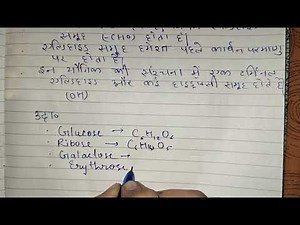 समूह (-CHO) होता है।
एल्डिहाइड समूह हमेशा पहले कार्बन परमाणु
पर होता है।
इन यौगिक की संरचना में एक टर्मिनल
एल्डिहाइड और कई हाइड्रॉक्सी समूह होते हैं
(OH)
उदा०
· Glucose → C₆H₁₂O₆
· Ribose → C₅H₁₀O₅
· Galactose →
· Erythrose